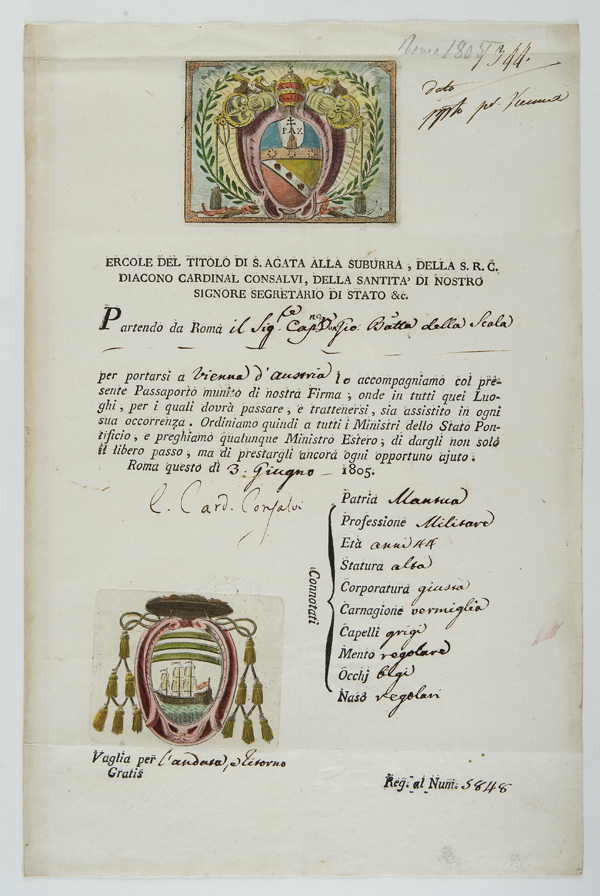 Roma 1805
1344.
dato
pr. Vienna
PAX
ERCOLE DEL TITOLO DI S. AGATA ALLA SUBURRA, DELLA S. R. C.
DIACONO CARDINAL CONSALVI, DELLA SANTITA' DI NOSTRO
SIGNORE SEGRETARIO DI STATO &c.
Partendo da Roma il Sig.re Cap.ne Don Gio: Batta della Scala
per portarsi a Vienna d'Austria lo accompagniamo col pre-
sente Passaporto munito di nostra Firma; onde in tutti quei Luo-
ghi, per i quali dovrà passare, e trattenersi, sia assistito in ogni
sua occorrenza. Ordiniamo quindi a tutti i Ministri dello Stato Pon-
tificio, e preghiamo qualunque Ministro Estero; di dargli non solo
il libero passo, ma di prestargli ancora ogni opportuno ajuto.
Roma questo dì 3. Giugno 1805.
E. Card. Consalvi
Connotati
Patria Mantua
Professione Militare
Età anni 44
Statura alta
Corporatura giusta
Carnagione vermiglia
Capelli grigi
Mento regolare
Occhj bigi
Naso regolari
Vaglia per l'andata, e ritorno
Gratis
Reg. al Num. 5848